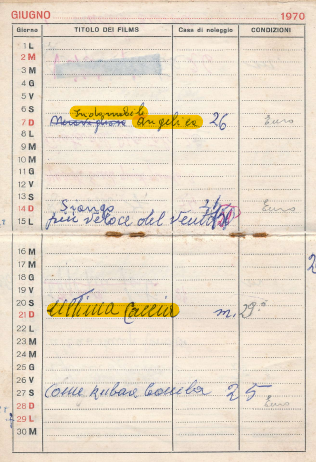 GIUGNO 1970
Giorno TITOLO DEI FILMS Casa di noleggio CONDIZIONI
1 L
2 M
3 M
4 G
5 V
6 S Indomabile
7 D Meravigliosa Angelica 26 Euro
8 L
9 M
10 M
11 G
12 V
13 S
14 D Euro
15 L più veloce del vento
16 M
17 M
18 G
19 V
20 S Ultima Caccia m. 29
21 D
22 L
23 M
24 M
25 G
26 V
27 S Come rubare bomba 25
28 D Euro
29 L
30 M